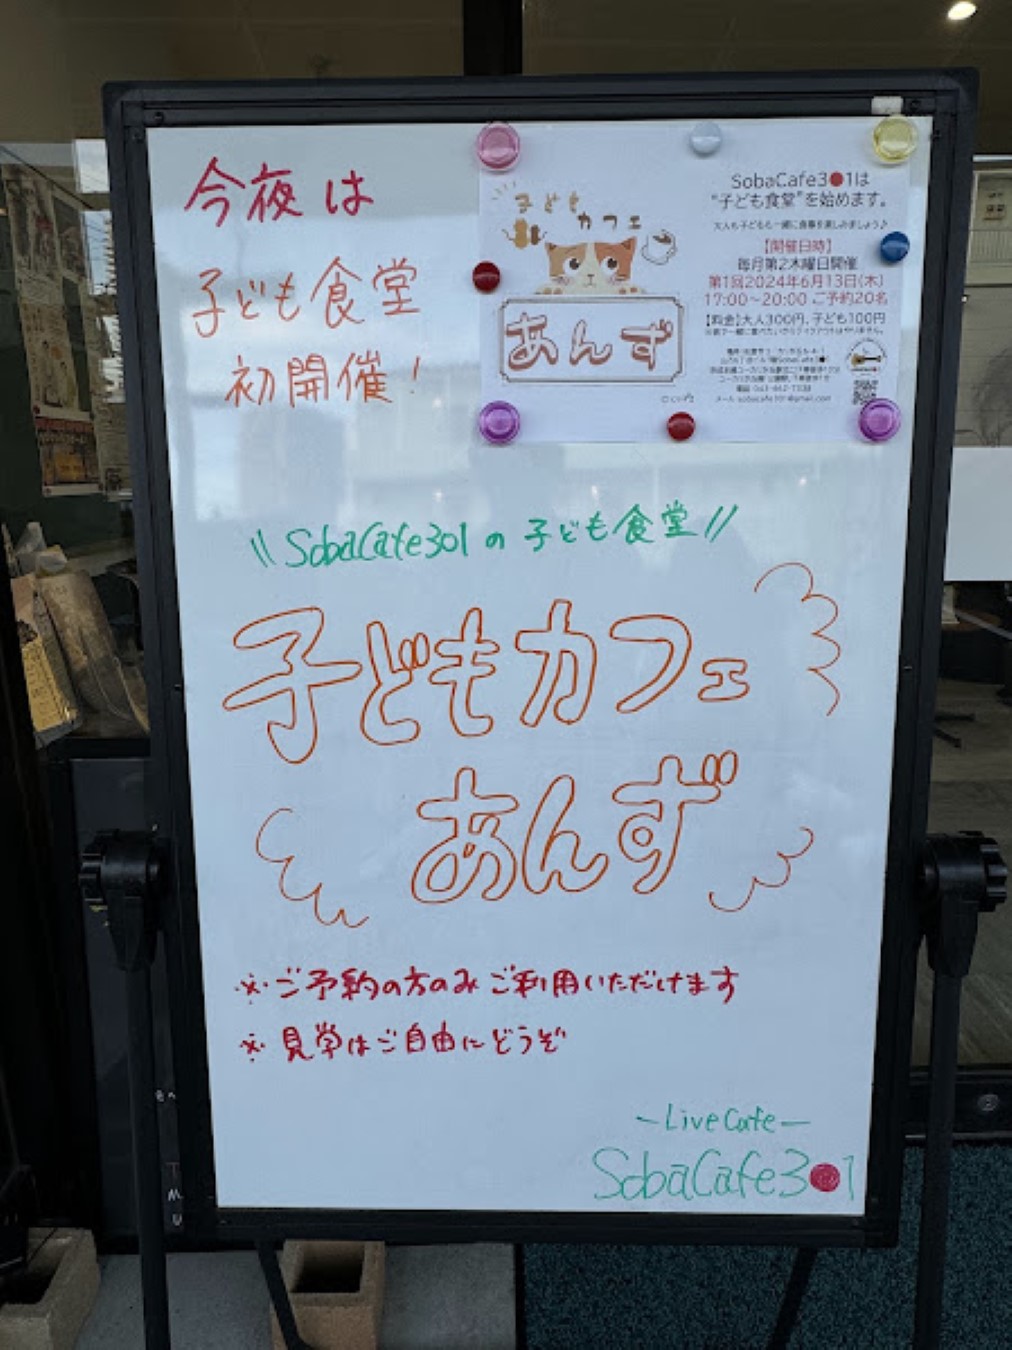 今夜は
子ども食堂
初開催！
子ども
カフェ
あんず
SobaCafe3●1は
“子ども食堂”を始めます。
大人も子どもも一緒に食事を楽しみましょう♪
【開催日時】
毎月第2木曜日開催
第1回2024年6月13日(木)
17:00～20:00 ご予約20名
【料金】大人300円、子ども100円
\\ SobaCafe301の子ども食堂 //
子どもカフェ
あんず
※ご予約の方のみご利用いただけます
※見学はご自由にどうぞ
—LiveCafe—
SobaCafe3●1